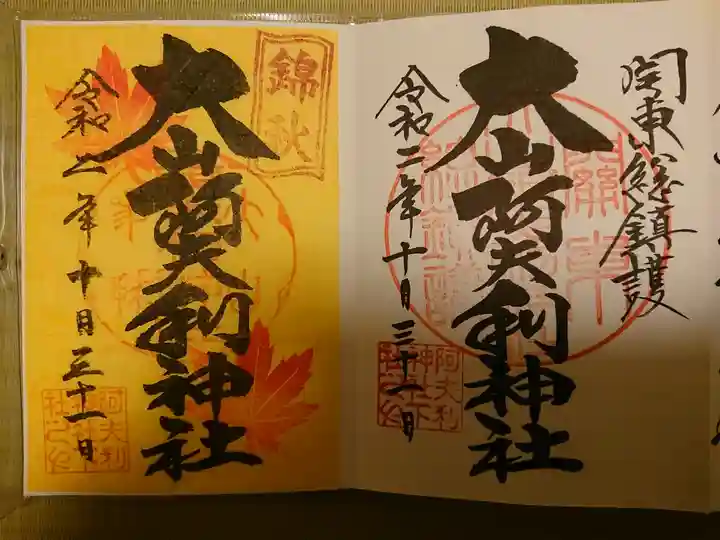 関東総鎮護
大山阿夫利神社
令和二年十月三十一日
阿夫利
神社下
社之印
錦秋
大山阿夫利神社
令和二年十月三十一日
阿夫利
神社下
社之印